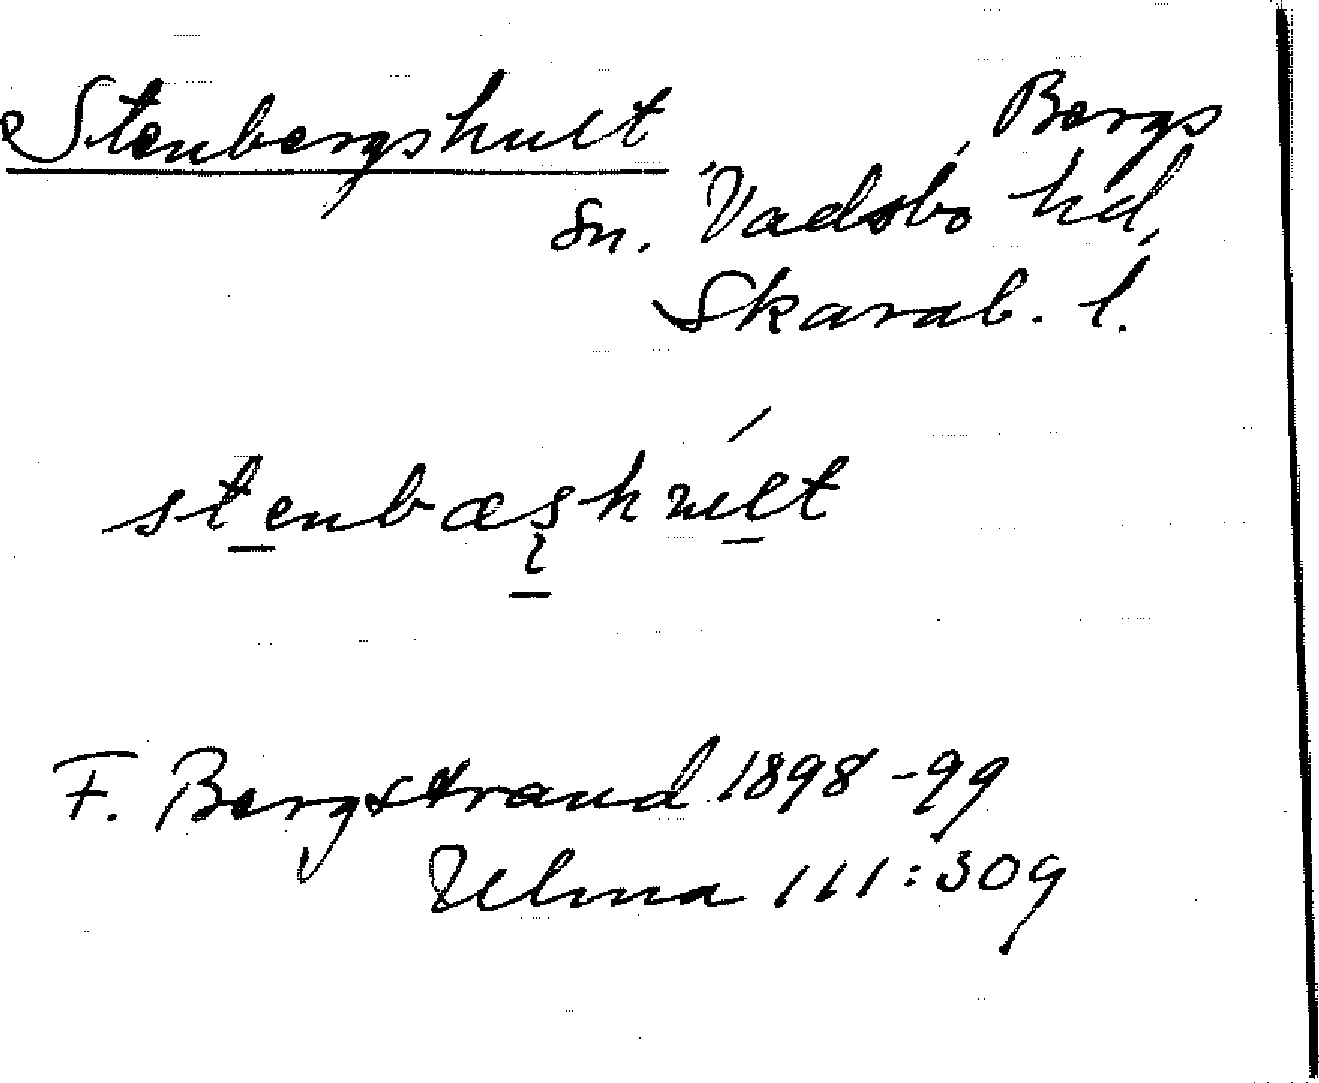 Stenbergshult Bergs
sn. Vadsbo hd.
Skarab. l.
stenbæshult
F. Bergstrand 1898-99
Ulma 111:309